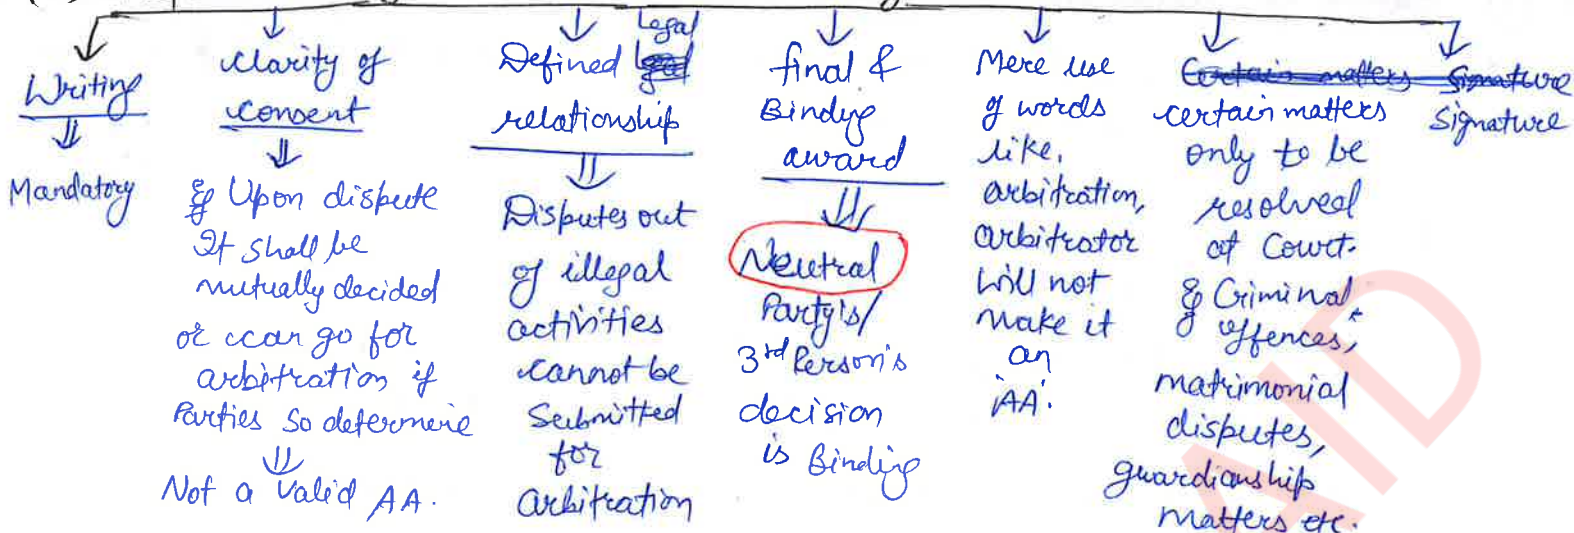 Writing
Mandatory
clarity of
consent
eg Upon dispute
It shall be
mutually decided
or can go for
arbitration if
Parties so determine
Not a valid AA.
Defined Legal
relationship
Disputes out
of illegal
activities
cannot be
Submitted
for
arbitration
final &
Binding
award
Neutral
Party's/
3rd Person's
decision
is Binding
Mere use
of words
like,
arbitration,
arbitrator
will not
make it
an
'AA'.
Certain matters
certain matters
only to be
resolved
at Court.
eg Criminal
offences,
matrimonial
disputes,
guardianship
matters etc.
Signature
Signature
AID